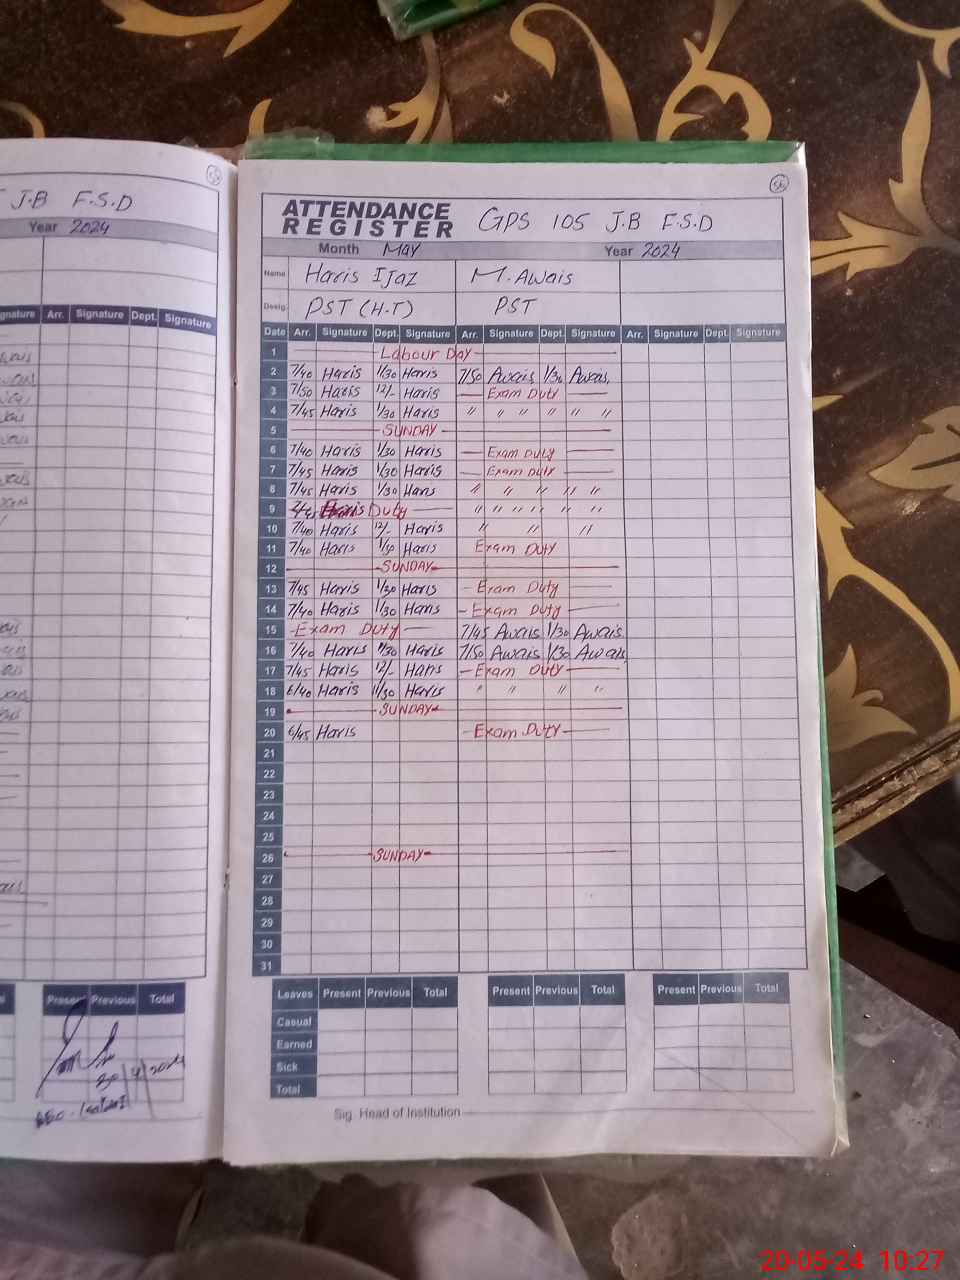 J.B F.S.D
Year 2024
Arr. Signature Dept. Signature
Present Previous Total
ATTENDANCE REGISTER GPS 105 J.B F.S.D
Month May Year 2024
Name Haris Ijaz M. Awais
Desig. PST (H.T) PST
Date Arr. Signature Dept. Signature Arr. Signature Dept. Signature Arr. Signature Dept. Signature
1 Labour Day
2 7/40 Haris 1/30 Haris 7/50 Awais 1/30 Awais
3 7/50 Haris 12/- Haris Exam Duty
4 7/45 Haris 1/30 Haris " " " " " "
5 SUNDAY
6 7/40 Haris 1/30 Haris Exam Duty
7 7/45 Haris 1/30 Haris Exam Duty
8 7/45 Haris 1/30 Haris " " " " "
9 Duty " " " " " "
10 7/40 Haris 12/- Haris " " "
11 7/40 Haris Haris Exam Duty
12 SUNDAY
13 7/45 Haris 1/30 Haris Exam Duty
14 7/40 Haris 1/30 Haris Exam Duty
15 Exam Duty 7/45 Awais 1/30 Awais
16 7/40 Haris Haris 7/50 Awais 1/30 Awais
17 7/45 Haris 12/- Haris Exam Duty
18 6/40 Haris 11/30 Haris " " " "
19 SUNDAY
20 6/45 Haris Exam Duty
21
22
23
24
25
26 SUNDAY
27
28
29
30
31
Leaves Present Previous Total Present Previous Total Present Previous Total
Casual
Earned
Sick
Total
Sig. Head of Institution
20-05-24 10:27